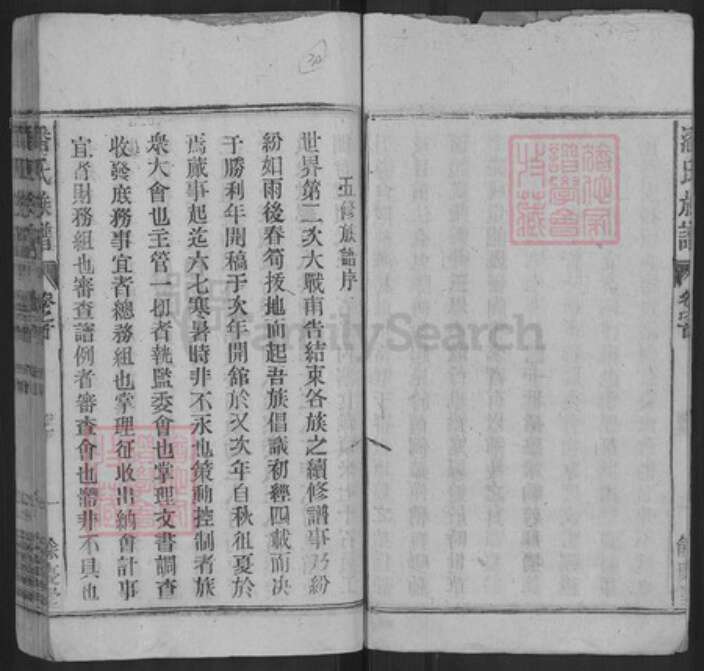 五修族譜序
世界第二次大戰甫告結束各族之續修譜事乃紛
紛如雨後春筍拔地而起吾族倡議初經四載而决
于勝利年開稿于次年開舘於又次年自秋徂夏於
焉蕆事起迄六七寒暑時非不永也策動控制者族
衆大會也主管一切者執監委會也掌理文書調查
收發庶務事宜者總務組也掌理征收出納會計事
宜者財務組也審查譜例者審查會也體非不具也
氏族譜
卷之首
一
氏族譜
卷之首
FamilySearch
30